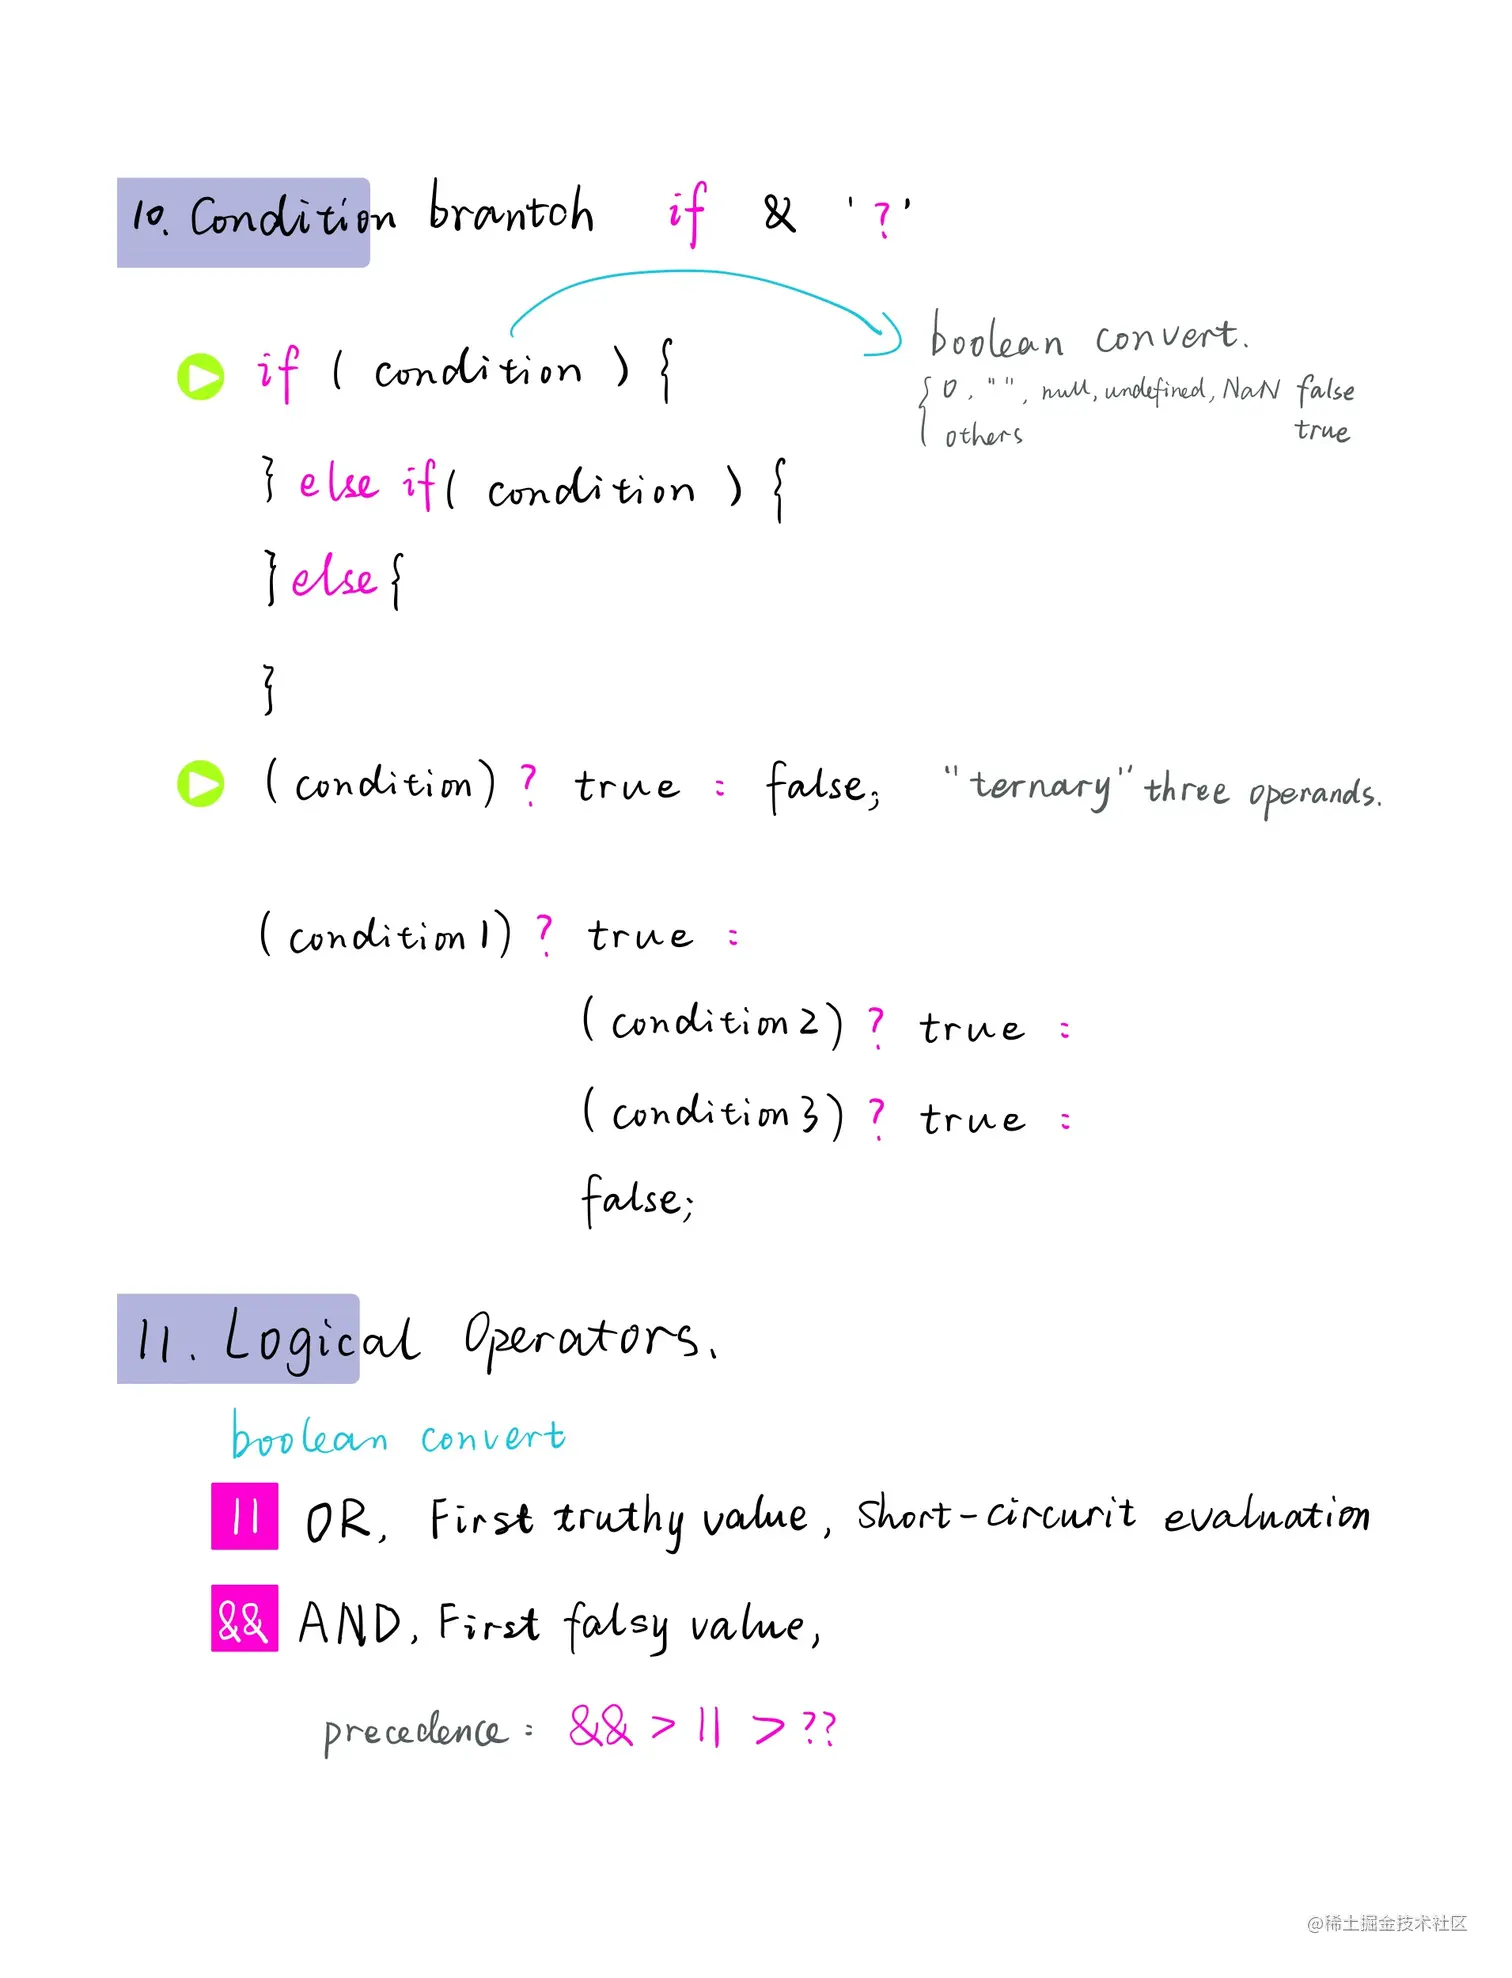 10. Condition brantch if & '?'
if ( condition ) {
boolean convert.
{ 0, "", null, undefined, NaN false
others true
} else if ( condition ) {
} else {
}
(condition) ? true : false; "ternary" three operands.
(condition1) ? true :
(condition2) ? true :
(condition3) ? true :
false;
11. Logical Operators.
boolean convert
|| OR, First truthy value, short-circurit evaluation
&& AND, First falsy value,
precedence: && > || > ??
@稀土掘金技术社区